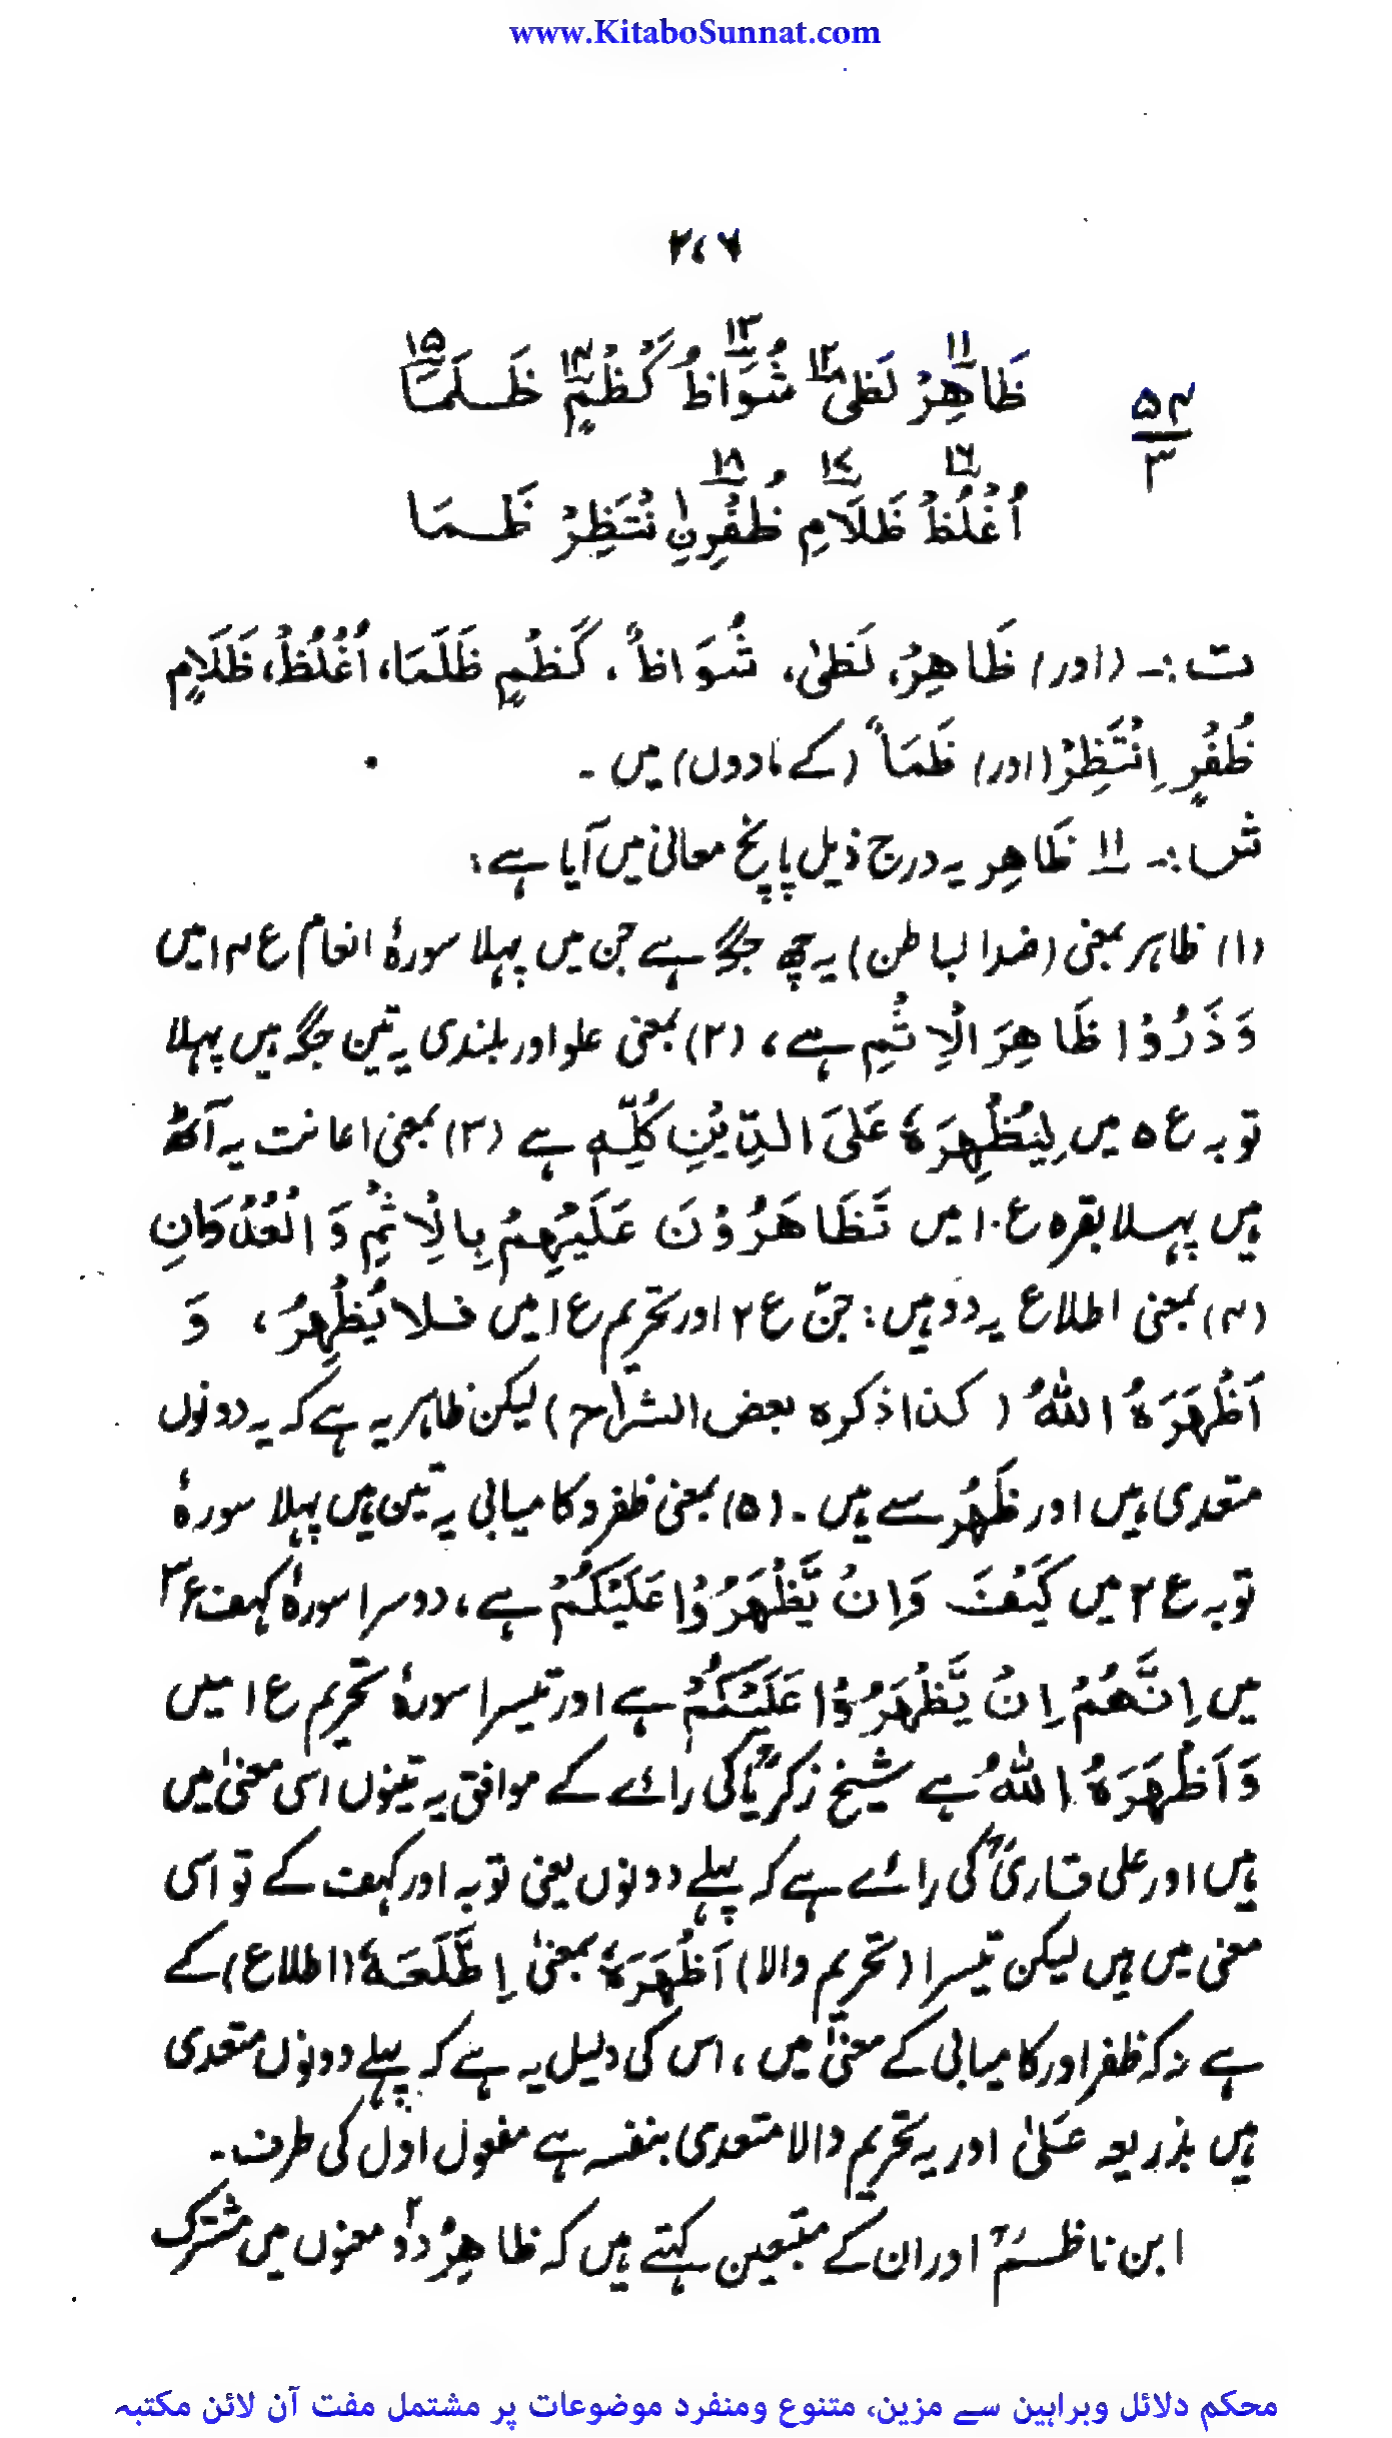 www.KitaboSunnat.com
۲۷۶
۵۴/۳ ظَاهِرْ لَظٰى شُوَاظُ كَظْمٍ ظَلَمَا
۱۱ ۱۲ ۱۳ ۱۴ ۱۵
اُغْلُظْ ظَلَامِ ظُفُرِنِ انْتَظِرْ ظَمَا
۱۶ ۱۷ ۱۸
ت :۔ (اور) ظَاهِرُ، لَظٰى، شُوَاظٌ ، كَظْمٍ ظَلَمَا، اُغْلُظْ، ظَلَامٍ
ظُفُرٍ اِنْتَظِرْ (اور) ظَمَاً (کے مادوں) میں ۔
ش :۔ ۱۱ ظَاهِر یہ درج ذیل پانچ معانی میں آیا ہے :
(۱) ظاہر بمعنی (ضد الباطن) یہ چھ جگہ ہے جن میں پہلا سورۂ انعام ع ۱۴ میں
وَذَرُوْا ظَاهِرَ الْاِثْمِ ہے ، (۲) بمعنی علو اور بلندی یہ تین جگہ ہیں پہلا
توبہ ع ۵ میں لِيُظْهِرَهٗ عَلَى الدِّيْنِ كُلِّهٖ ہے (۳) بمعنی اعانت یہ آٹھ
ہیں پہلا بقرہ ع ۱۰ میں تَظَاهَرُوْنَ عَلَيْهِمْ بِالْاِثْمِ وَالْعُدْوَانِ
(۴) بمعنی اطلاع یہ دو ہیں : جنّ ع ۲ اور تحریم ع ۱ میں فَلَا يُظْهِرُ ، وَ
اَظْهَرَهُ اللّٰهُ (کذا ذکرہ بعض الشراح) لیکن ظاہر یہ ہے کہ یہ دونوں
متعدی ہیں اور ظَهَرَ سے ہیں ۔ (۵) بمعنی ظفر و کامیابی یہ تین ہیں پہلا سورۂ
توبہ ع ۲ میں كَيْفَ وَاِنْ يَّظْهَرُوْا عَلَيْكُمْ ہے ، دوسرا سورۂ کہف ع ۳
میں اِنَّهُمْ اِنْ يَّظْهَرُوْا عَلَيْكُمْ ہے اور تیسرا سورۂ تحریم ع ۱ میں
وَاَظْهَرَهُ اللّٰهُ ہے شیخ زکریاؒ کی رائے کے موافق یہ تینوں اسی معنیٰ میں
ہیں اور علی قاریؒ کی رائے ہے کہ پہلے دونوں یعنی توبہ اور کہف کے تو اسی
معنی میں ہیں لیکن تیسرا (تحریم والا) اَظْهَرَهٗ بمعنیٰ اِطَّلَعَهٗ (اطلاع) کے
ہے نہ کہ ظفر اور کامیابی کے معنیٰ میں ، اس کی دلیل یہ ہے کہ پہلے دونوں متعدی
ہیں بذریعہ عَلیٰ اور یہ تحریم والا متعدی بنفسہ ہے مفعول اول کی طرف ۔
ابن ناظمؒ اور ان کے متبعین کہتے ہیں کہ ظاہِرْ دو۲ معنوں میں مشترک
محکم دلائل وبراہین سے مزین، متنوع ومنفرد موضوعات پر مشتمل مفت آن لائن مکتبہ